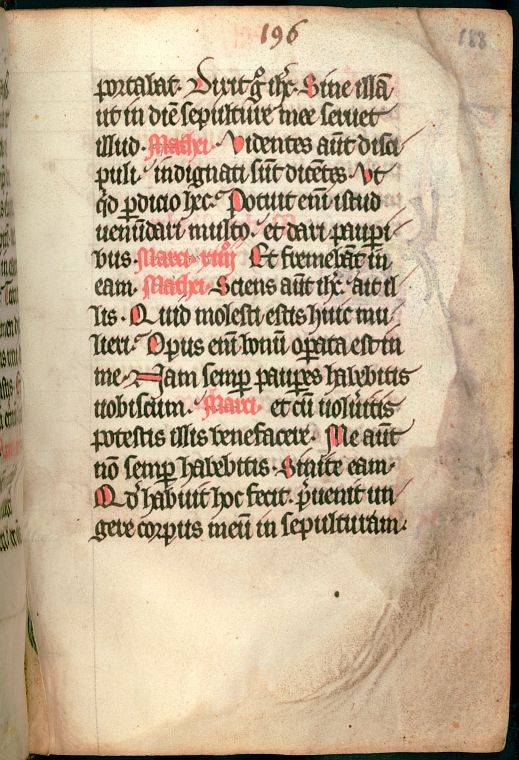 196
188
portabat. Dixit gͦ ihc̄. Sine illā
ut in diē sepulture mee seruet
illud. Mathei. Videntes aūt disci
puli indignati sūt dicētes. Vt
qͥd ꝑdicio hec. Potuit eni᷑ istud
uenūdari multo. et dari paupi
bus. Marci xiiij Et fremebāt in
eam. Mathei. Sciens aūt ihc̄. ait il
lis. Quid molesti estis huic mu
lieri. Opus eni᷑ bonū oꝑata est in
me. Nam semꝑ pauꝑes habebitis
uobiscum. Marci. et cū uolūitis
potestis illis benefacere. Me aūt
nō semꝑ habebitis. Sinite eam.
Qd̓ habuit hoc fecit. p̄uenit un
gere corpus meū in sepulturam.